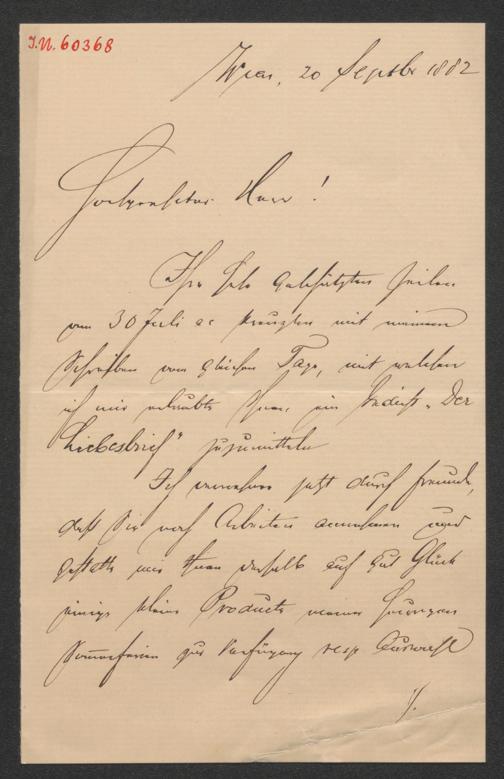 I.N. 60368
Wien, 20 Septbr 1882
Hochgeehrter Herr!
Ihre sehr geschätzten Zeilen
vom 30 Juli ac kreuzten mit meinem
Schreiben vom gleichen Tage, mit welchem
ich mir erlaubte Ihnen ein Gedicht „Der
Liebesbrief" zuzumitteln
Ich vernehme jetzt durch Freunde,
daß Sie noch Arbeiten annehmen und
gestatte mir Ihnen deshalb auf gut Glück
einige kleine Producte meiner heurigen
Sommerferien zur Verfügung resp Auswahl